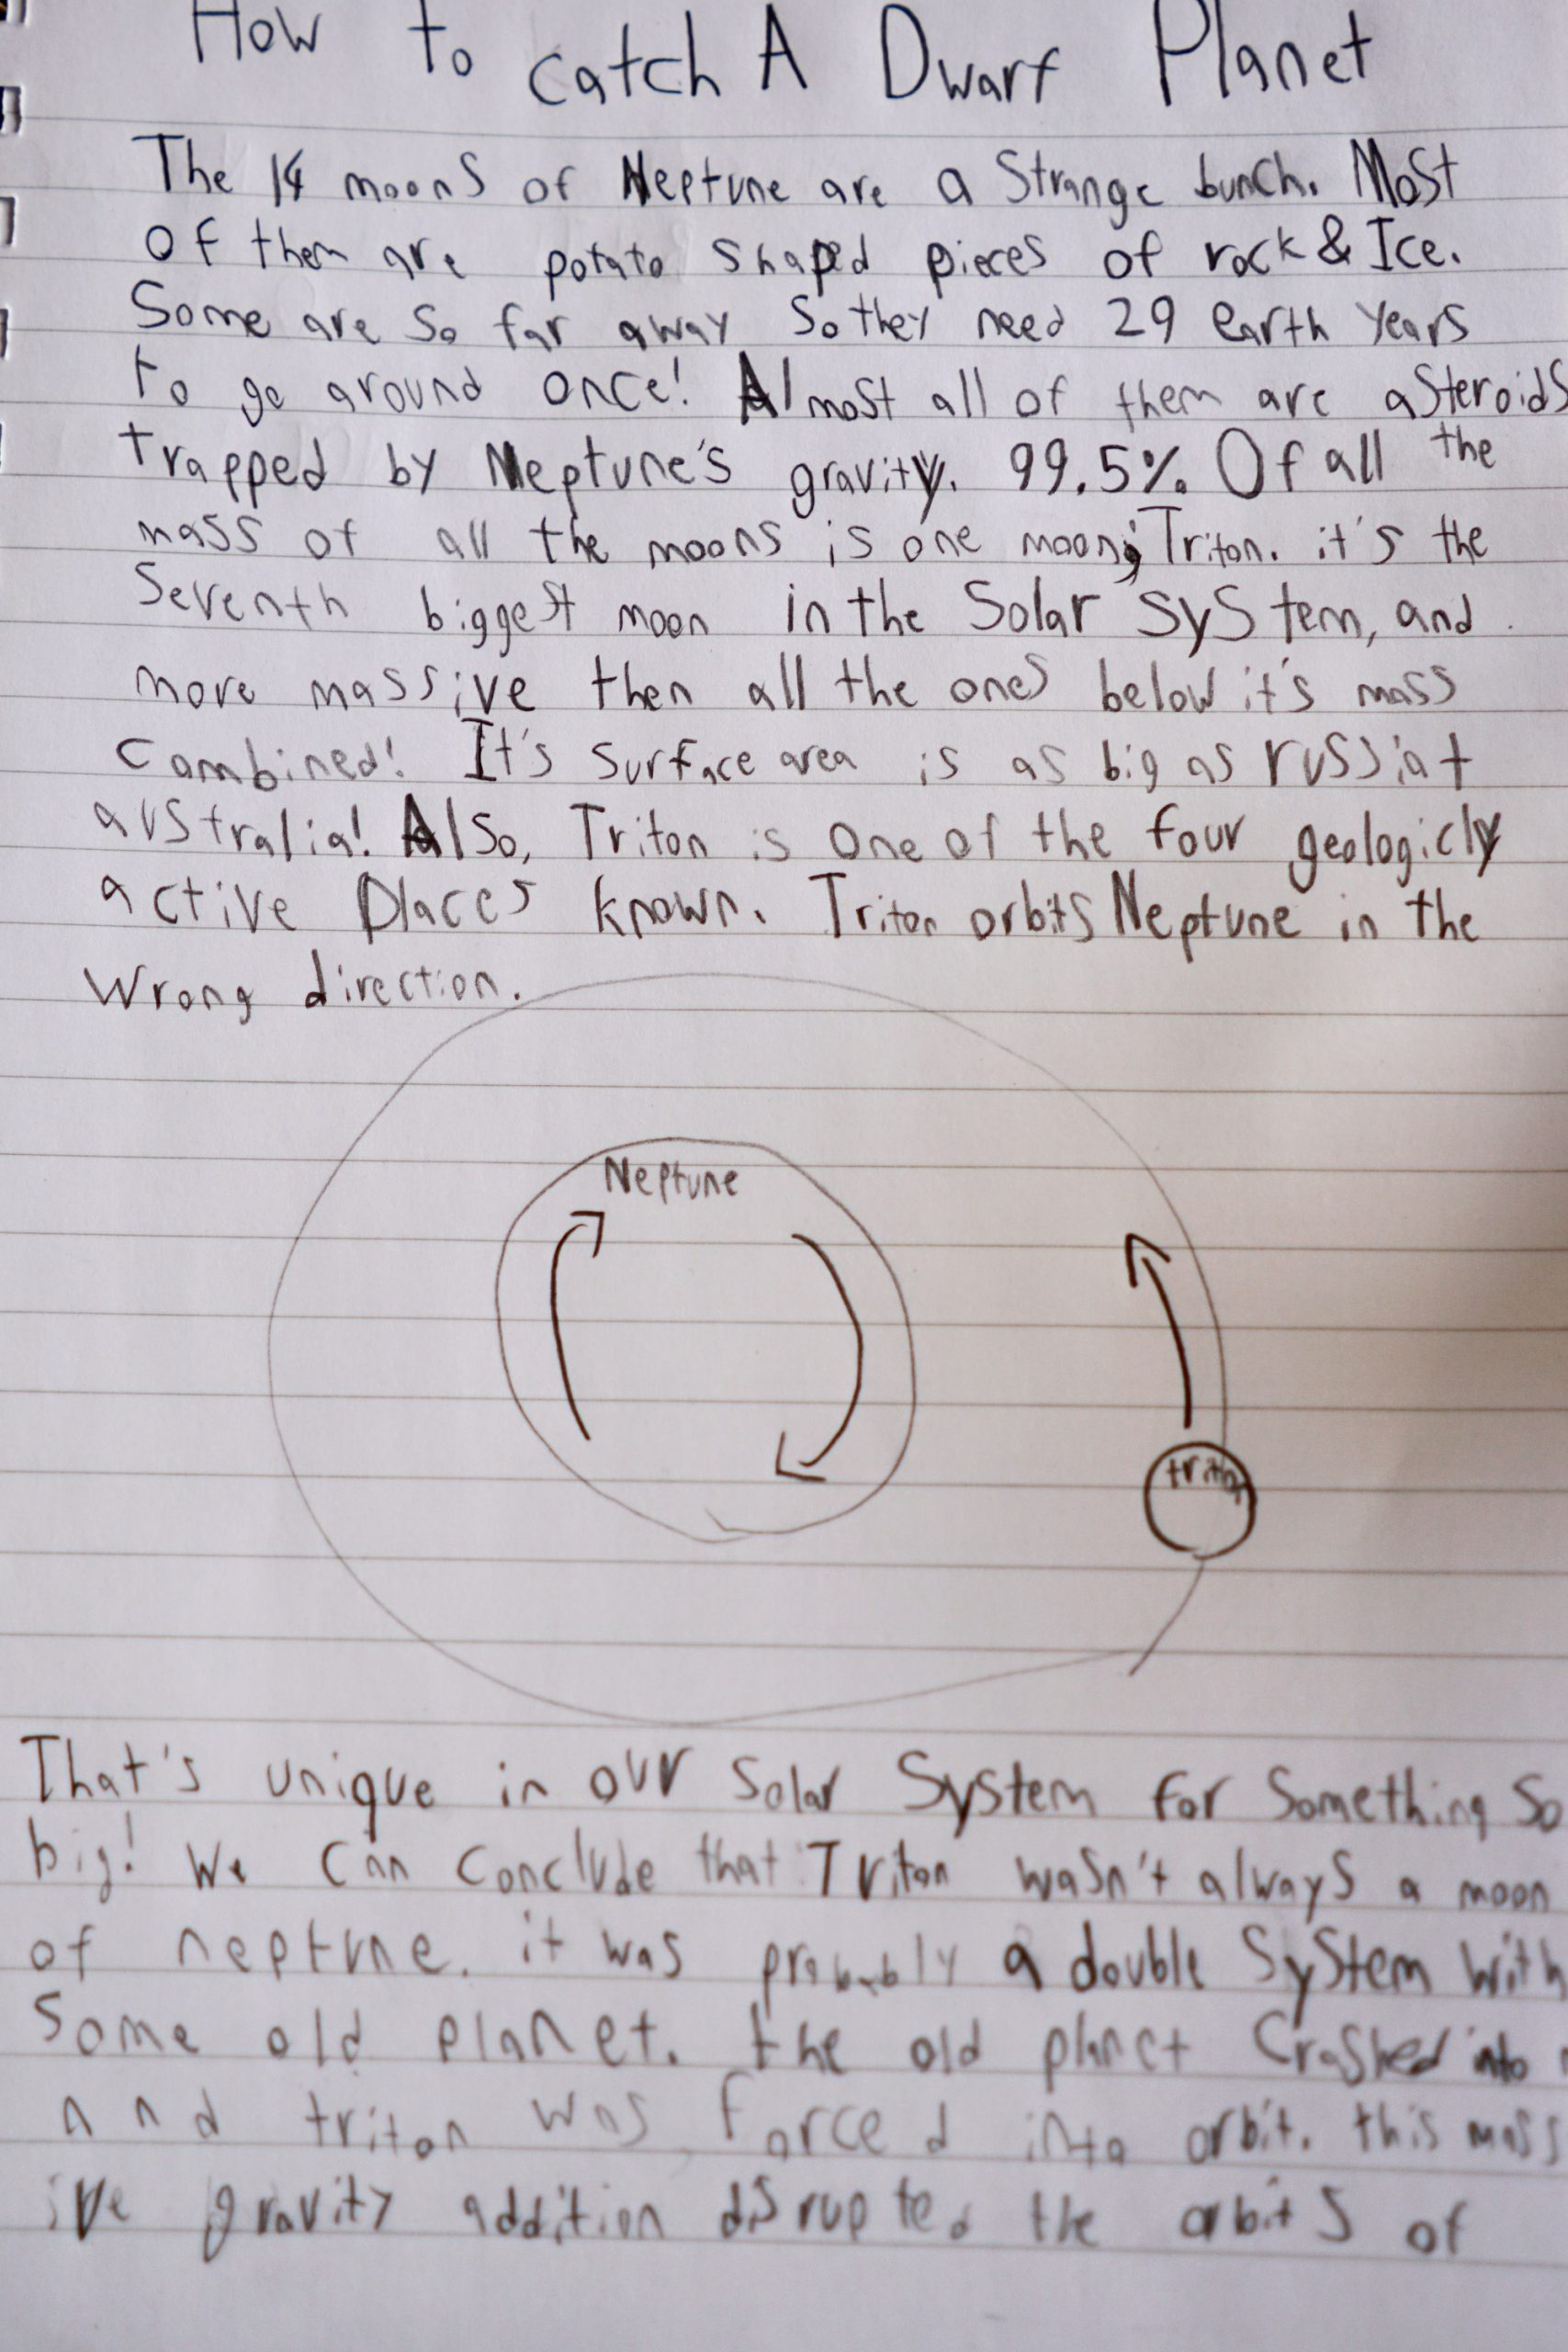 How to catch A Dwarf Planet
The 14 moons of Neptune are a Strange bunch. Most
Of them are potato shaped pieces of rock & Ice.
Some are so far away So they need 29 earth years
to go around once! Almost all of them are asteroids
trapped by Neptune's gravity. 99.5%. Of all the
mass of all the moons is one moon; Triton. it's the
Seventh biggest moon in the Solar System, and
more massive then all the ones below it's mass
combined! It's surface area is as big as russia+
australia! Also, Triton is one of the four geologicly
active places known. Triton orbits Neptune in the
Wrong direction.
Neptune
triton
That's unique in our Solar System for Something So
big! We can conclude that Triton wasn't always a moon
of neptune. it was probably a double System with
Some old planet. the old planet Crashed into
and triton was forced into orbit. this mass
ive gravity addition disrupted the orbits of